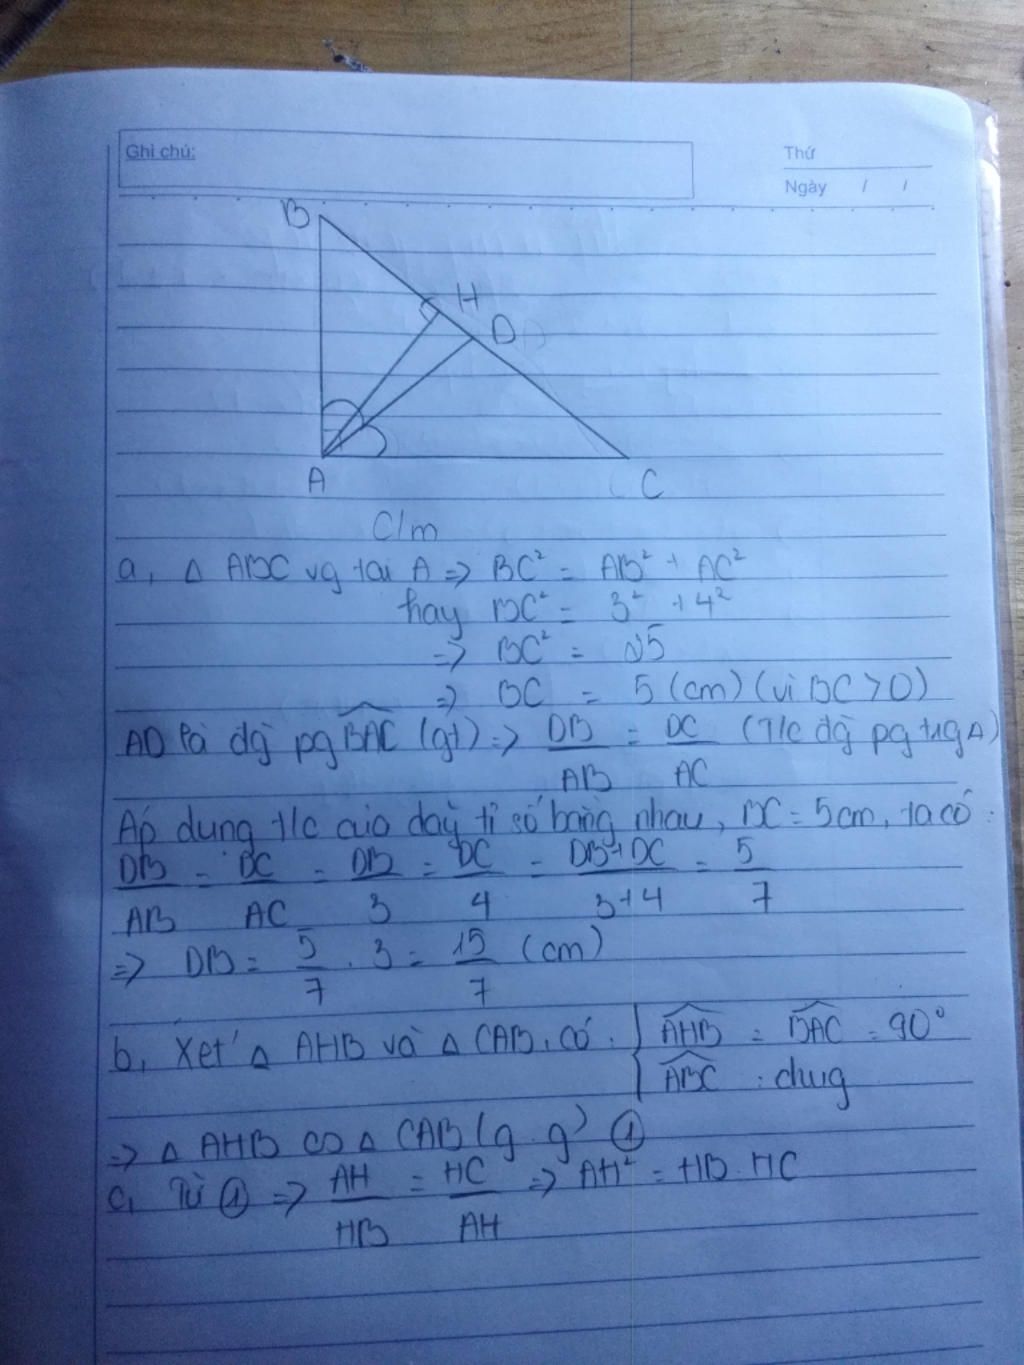 Ghi chú:
Thứ
Ngày / /
B
H
D
A
C
C/m
a, Δ ABC vg tại A => BC² = AB² + AC²
hay BC² = 3² + 4²
=> BC² = 25
=> BC = 5 (cm) (vì BC > 0)
AD là đg pg BAC (gt) => DB/AB = DC/AC (T/c đg pg tng Δ)
Áp dụng t/c của dãy tỉ số bằng nhau, BC = 5cm, ta có:
DB/AB = DC/AC = DB/3 = DC/4 = DB+DC/3+4 = 5/7
=> DB = 5/7 . 3 = 15/7 (cm)
b, Xét Δ AHB và Δ CAB, có: { AHB = BAC = 90°
ABC : chung
=> Δ AHB ∽ Δ CAB (g.g) ①
c, Từ ① => AH/HB = HC/AH => AH² = HB . HC